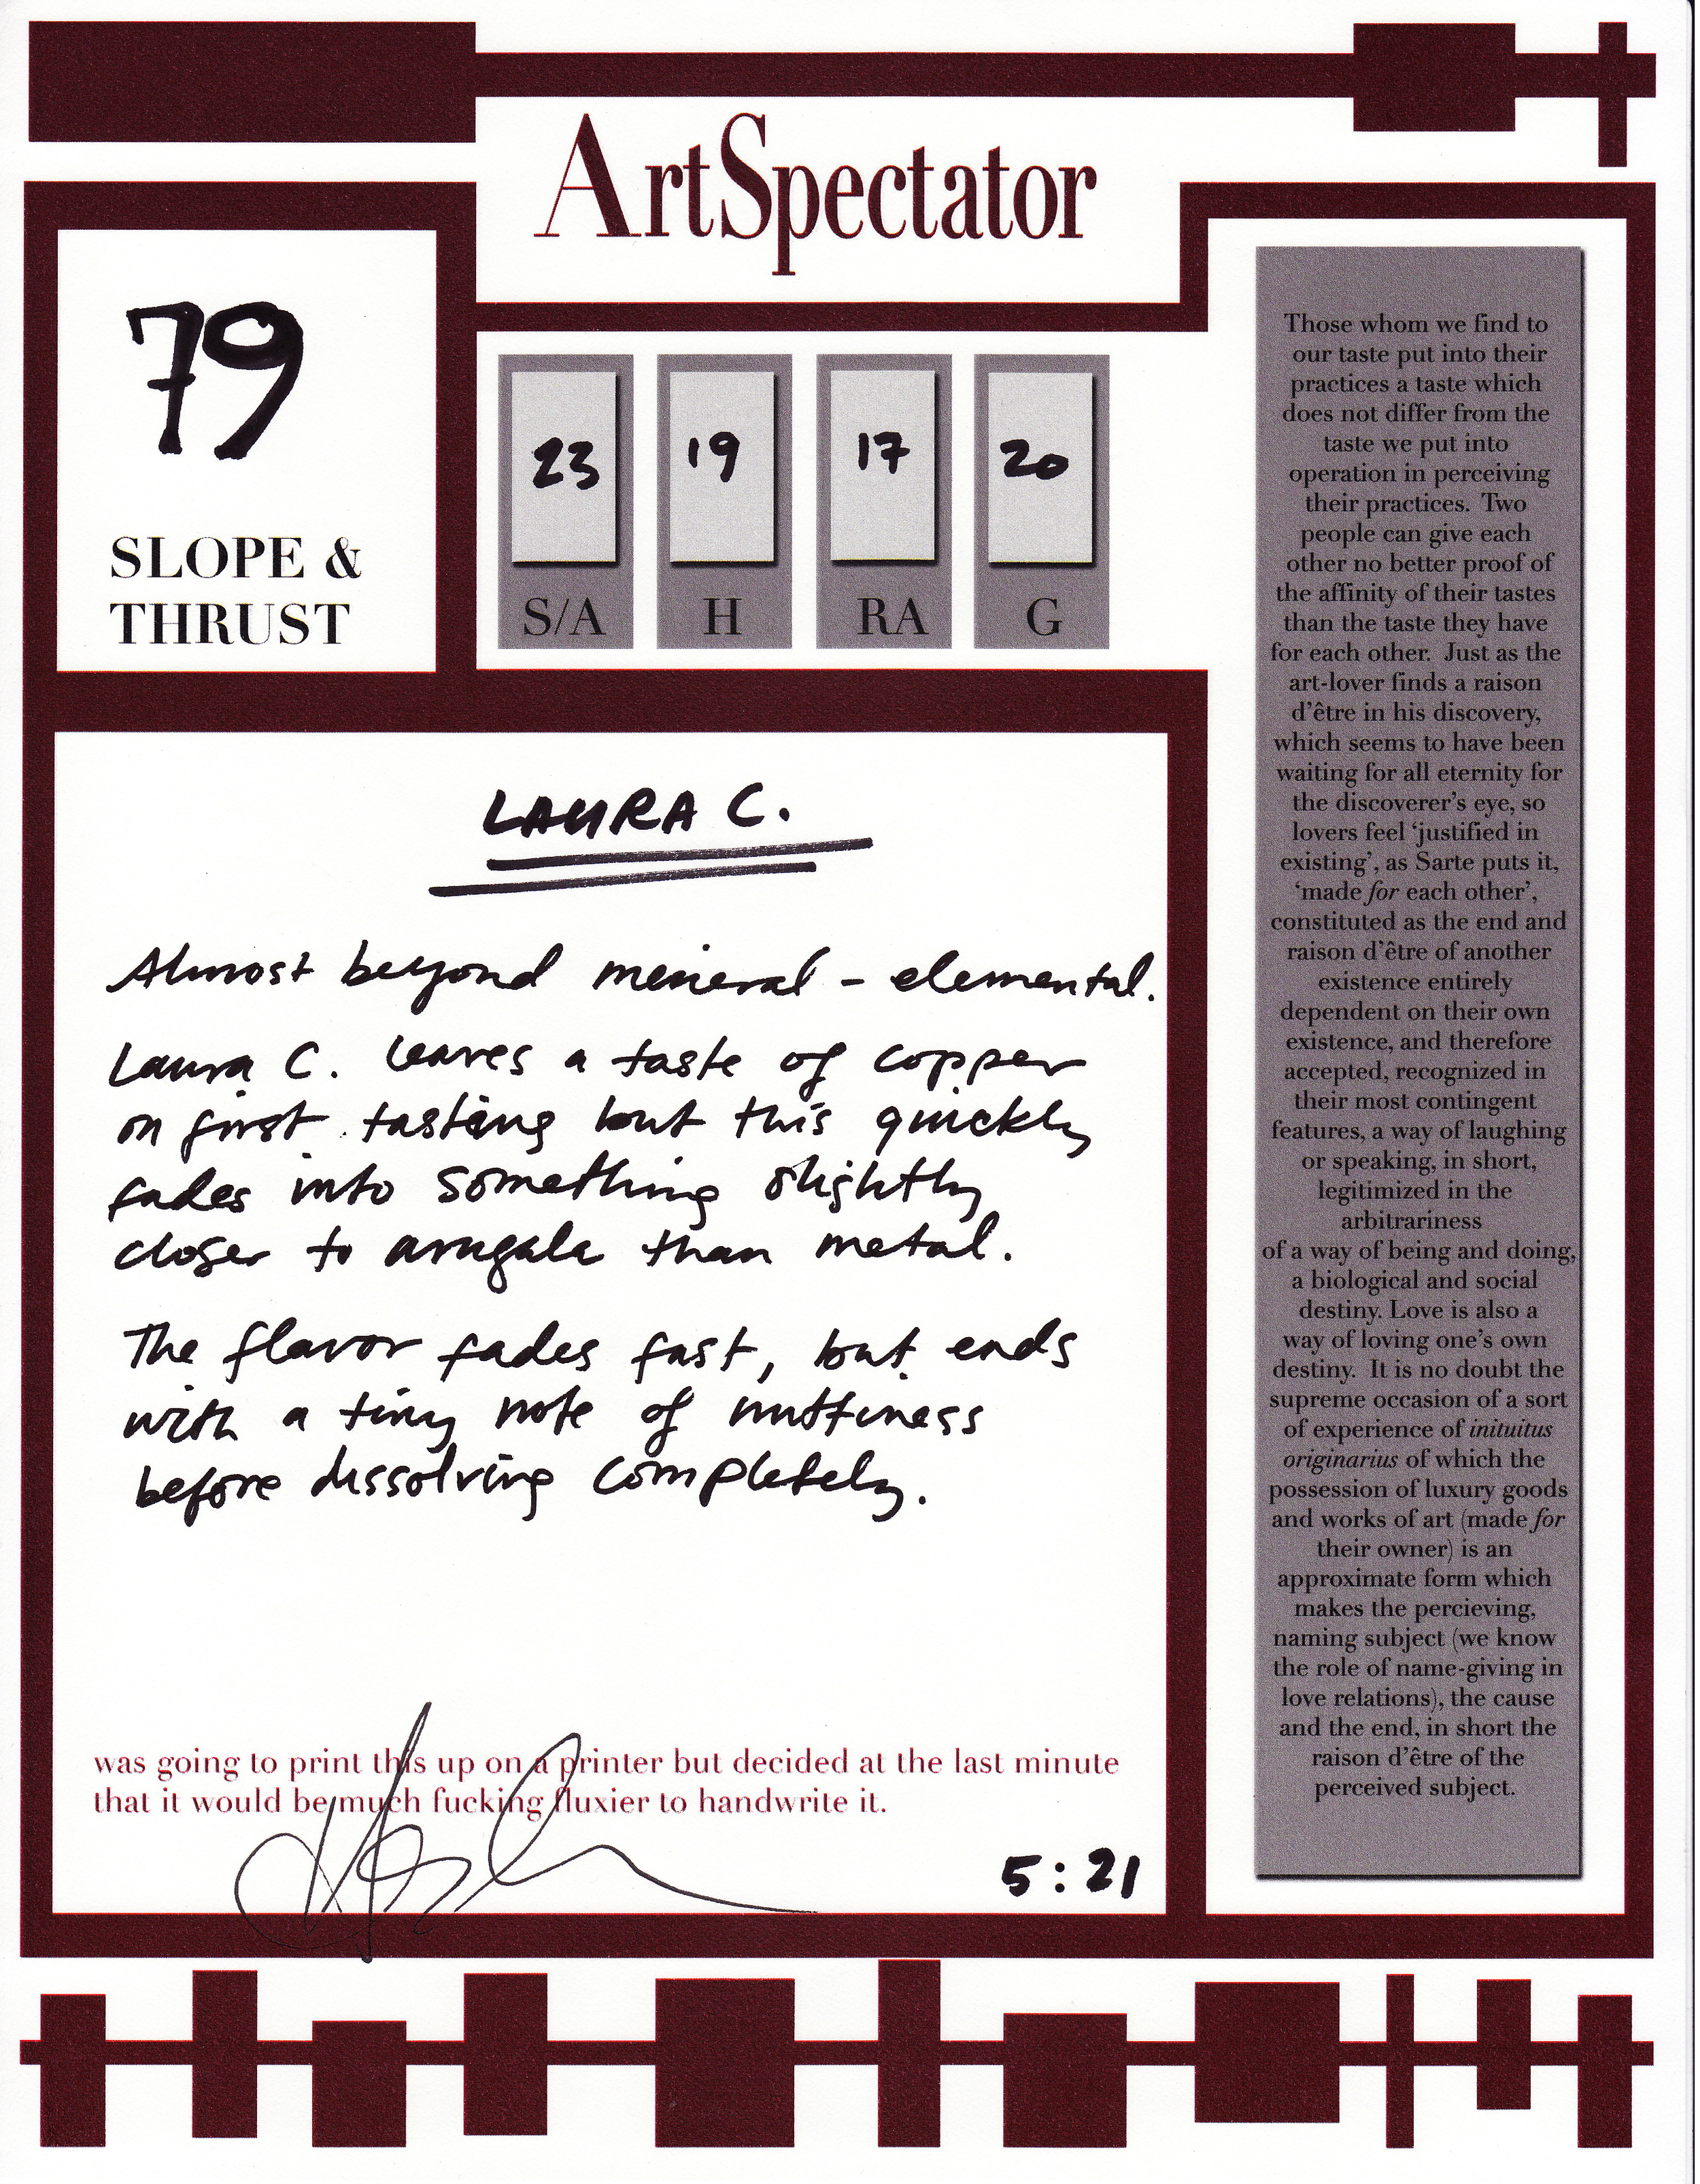 ArtSpectator
79
SLOPE &
THRUST
23
S/A
19
H
17
RA
20
G
LAURA C.
Almost beyond mineral – elemental.
Laura C. leaves a taste of copper
on first tasting but this quickly
fades into something slightly
closer to arugala than metal.
The flavor fades fast, but ends
with a tiny note of nuttiness
before dissolving completely.
was going to print this up on a printer but decided at the last minute
that it would be much fucking fluxier to handwrite it.
5:21
Those whom we find to
our taste put into their
practices a taste which
does not differ from the
taste we put into
operation in perceiving
their practices. Two
people can give each
other no better proof of
the affinity of their tastes
than the taste they have
for each other. Just as the
art-lover finds a raison
d'être in his discovery,
which seems to have been
waiting for all eternity for
the discoverer's eye, so
lovers feel 'justified in
existing', as Sarte puts it,
'made for each other',
constituted as the end and
raison d'être of another
existence entirely
dependent on their own
existence, and therefore
accepted, recognized in
their most contingent
features, a way of laughing
or speaking, in short,
legitimized in the
arbitrariness
of a way of being and doing,
a biological and social
destiny. Love is also a
way of loving one's own
destiny. It is no doubt the
supreme occasion of a sort
of experience of inituitus
originarius of which the
possession of luxury goods
and works of art (made for
their owner) is an
approximate form which
makes the percieving,
naming subject (we know
the role of name-giving in
love relations), the cause
and the end, in short the
raison d'être of the
perceived subject.